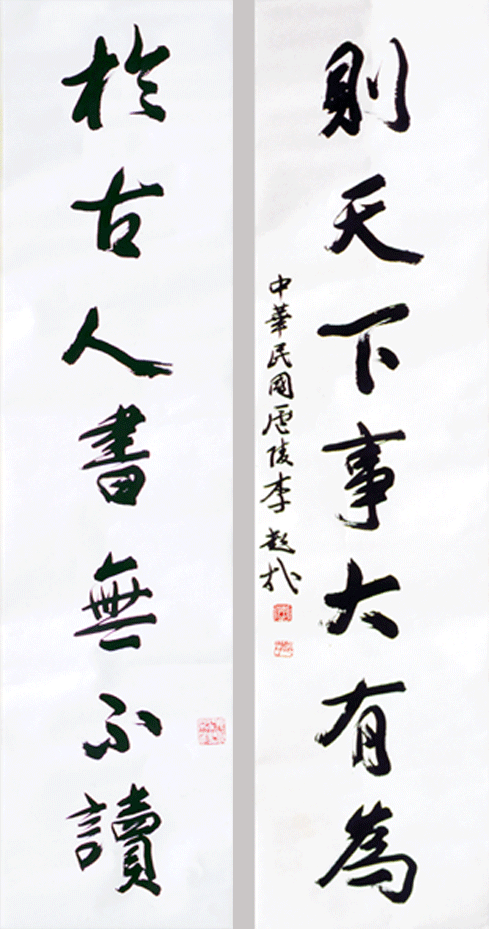 於古人書無不讀
則天下事大有為
中華民國陵李超哉